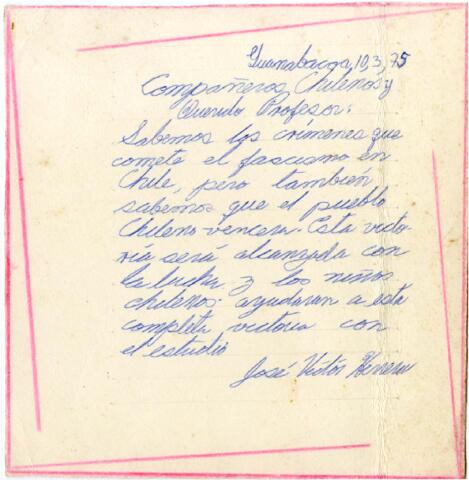 Guanabacoa 10,3,75
Compañeros Chilenos y
Querido Profesor:
Sabemos los crímenes que
comete el fascismo en
Chile, pero también
sabemos que el pueblo
Chileno vencera. Esta victo-
ría será alcanzada con
la lucha y los niños
chilenos: ayudaran a esta
completa victoria con
el estudio
José Victór Herrera